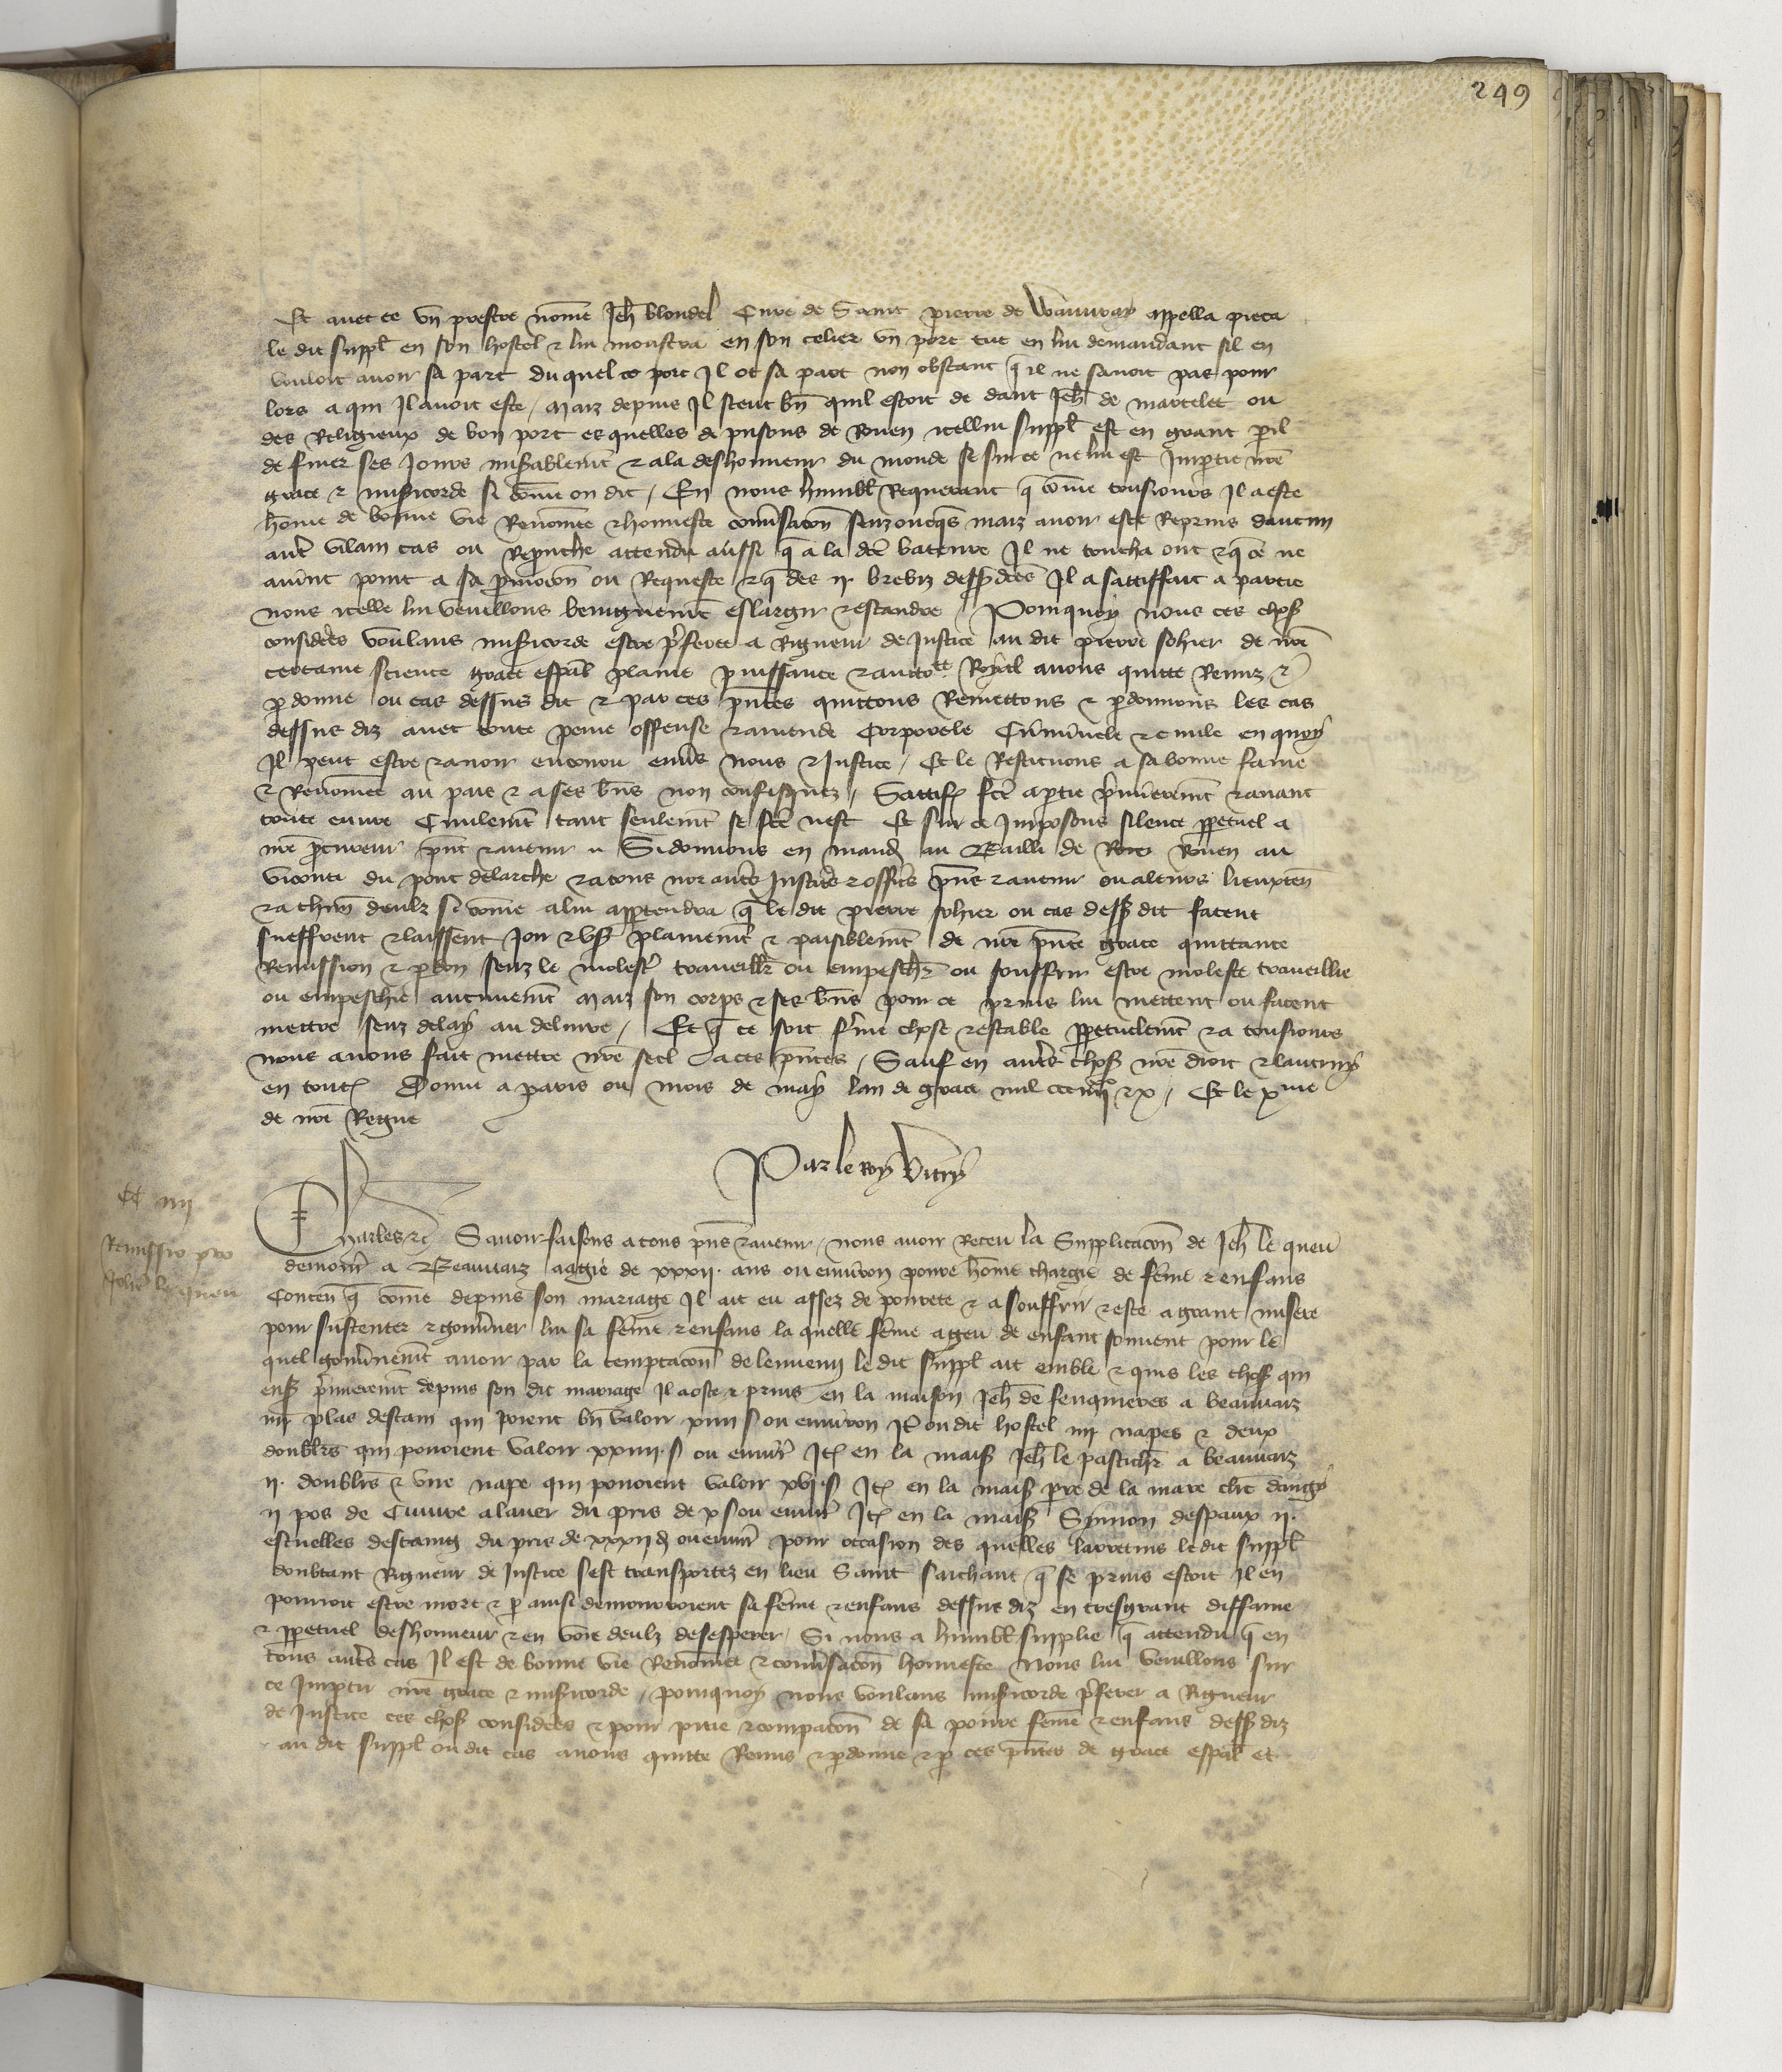 249
Et avec ce un prestre nomé Jeh blondel Curé de Saint pierre de Wauvray appella pieca
le dit suppl en son hostel & lui monstra en son celier un porc tué en lui demandant sil en
vouloit avoir sa part du quel porc Il ot sa part non obstant q il ne savoit pas pour
lors a qui Il avoit esté / Maiz depuis Il sceut bn quil estoit de dant Jeh de martelet ou
des Religieux de bon port es quelles prisons de Rouen icellui suppl est en grant peril
de finer ses Jours misablemt & a la deshonneur du monde se sur ce ne lui est Impartie nre
grace & misicorde si come on dit / En nous humbl Requerant q come tousjours Il a esté
home de bonne vie Renomée & honneste conversacon senz oncqs maiz avoir esté Reprins daucun
autre vilain cas ou Reprouche attendu aussi q a la dce bateure Il ne toucha onc & q ce ne
avint point a sa pmocon ou Requeste & q des ii brebiz dessdces Il a sattiffait a partie
nous icelle lui veuillons benignemt eslargir & estandre / Pourquoy nous ces choses
considerés voulans misicorde estre pferee a Rigueur de Justice au dit pierre sohier de nre
certaine science grace espal plaine puissance & auctoté Royal avons quitté Remiz &
pdonné ou cas dessus dit & par ces pntes quittons Remettons & pdonnons les cas
dessus diz avec toute peine offense & amende Corporele Criminele & civile en quoy
Il peut estre & avoir encouru envers nous & Justice / Et le Restituons a sa bonne fame
& Renomée au pais & a ses bns non confisquez / Sattisf fce a ptie pmierement & avant
toute euvre Civilemt tant seulemt se fce nest Et sur ce Imposons silence ppetuel a
nre pcureur pnt & avenir Si donnons en mand au Bailli de Rouen au
viconte du pont delarche & a tous noz autres Justiciers & officiers pns & avenir ou a leurs lieuxten
& a chun deulx si come a lui apptendra q le dit pierre sohier ou cas dess dit facent
sueffrent & laissent Jouir & user plainemt & paisiblemt de nre pnte grace quittance
Remission & pdon senz le molester traveiller ou empescher ou souffrir estre molesté traveillié
ou empeschié aucunement Maiz son corps & ses bns pour ce prins lui mettent ou facent
mettre senz delay au delivre / Et q ce soit ferme chose & estable ppetuelmt & a tousjours
nous avons fait mettre nre seel a ces pntes / Sauf en autres choses nre droit & lautruy
en toutes Donné a paris ou mois de may lan de grace mil ccc iiiixx & x / Et le xme
de nre Regne
Par le roy Vitry
CC iiii
Remissio pro
Johe le queu
Charles &c Savoir faisons a tous pns & avenir / nous avoir Receu la Supplicacon de Jeh le queu
demour a Beauvaiz aagié de xxxii ans ou environ povre home chargié de feme & enfans
Conten q come depuis son mariage Il ait eu assez de povreté & a souffrir & esté a grant misere
pour sustenter & gouverner lui sa feme & enfans la quelle feme a geu de enfant souvent pour le
quel gouvernemt avoir par la temptacon de lennemy le dit suppl ait emblé & prins les choses qui
ens pmierement depuis son dit mariage Il a osté & prins en la maison Jeh de feuquieres a beauvaiz
iiii plas destain qui povient bn valoir xiiii s ou environ It ou dit hostel iii napes & deux
doubliers qui povoient valoir xxiiii s ou environ Item en la maiso Jeh le pasticher a beauvaiz
ii doubliers & une nape qui povoient valoir xvi s Item en la maiso pre de la mare
ii pos de Cuivre a laver du pris de x s ou environ Item en la maiso Symon despaux ii
escuelles destaing du pris de xxxii d ou environ pour occasion des quelles larrecins le dit suppl
doubtant Rigueur de Justice sest transportez en lieu Saint saichant q se prins estoit Il en
pourroit estre mort & p ainsi demourroient sa feme & enfans dessus diz en tresgrant diffame
& ppetuel deshonneur & en voie deulz desesperer / Si nous a humbl supplié q attendu q en
tous autres cas Il est de bonne vie Renomée & conversacon honneste Nous lui veuillons sur
ce Impartir nre grace & misicorde / pourquoy nous voulans misicorde pferer a Rigueur
de Justice ces choses considerés & pour pitié & compacon de sa povre feme & enfans dess diz
au dit suppl ou dit cas avons quitté Remis & pdonné & p ces pntes de grace espal et